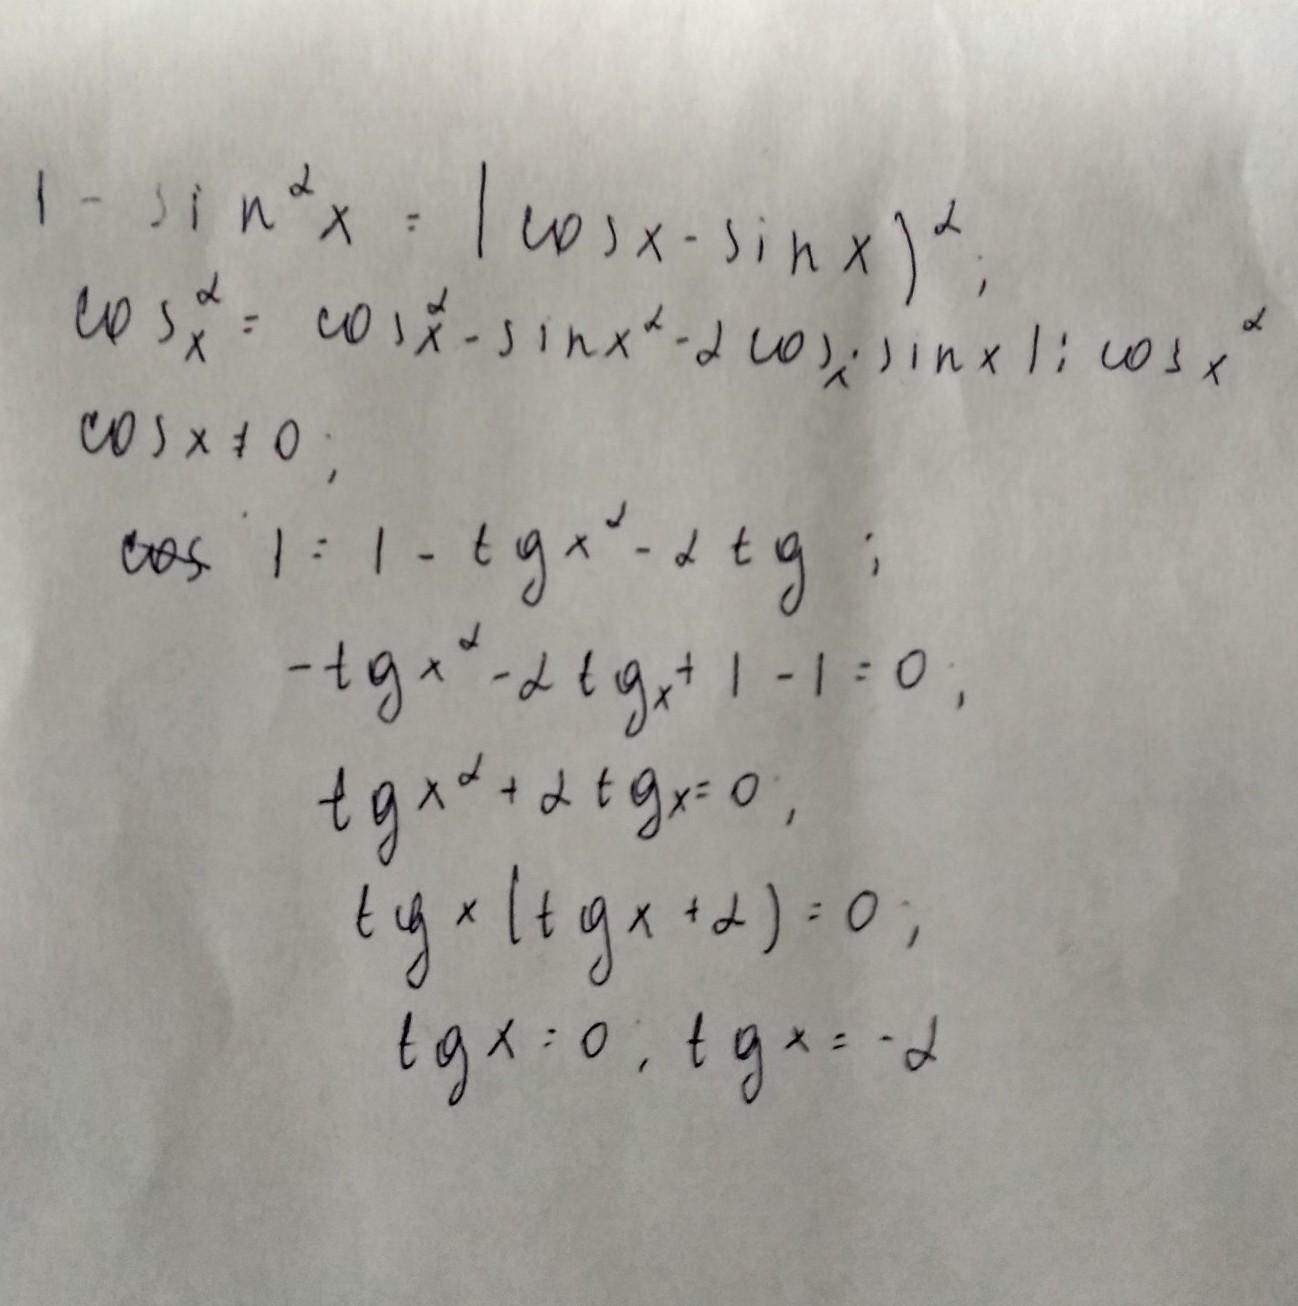 1 - sin²x = (cosx - sinx)²;
cosx² = cosx² - sinx² - 2cosx · sinx |: cosx²
cosx ≠ 0;
cos 1 = 1 - tgx² - 2tg ;
-tgx² - 2tgx + 1 - 1 = 0;
tgx² + 2tgx = 0;
tgx(tgx + 2) = 0;
tgx = 0, tgx = -2